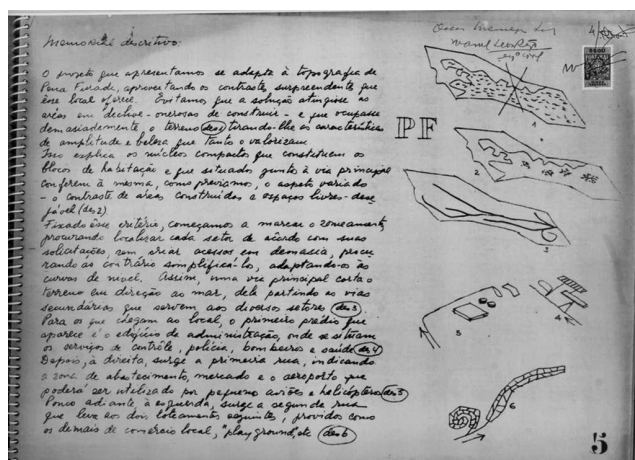 Memorial descritivo:
O projeto que apresentamos se adapta à topografia de
Pena Furada, aproveitando os contraste surpreendente que
êsse local oferece. Evitamos que a solução atingisse as
areas em declive - onerosas de construir - e que ocupasse
demasiadamente o terreno (des 1) tirando-lhe as caracteristicas
de amplitude e beleza que tanto o valorizam.
Isso explica os núcleos compactos que constituem os
blocos de habitação e que situados junto à via principal
conferem à mesma, como previamos, o aspeto variado
- o contraste de areas construidas e espaços livres - dese
jável (des 2).
Fixado êsse critério, começamos a marcar o zoneamento,
procurando localizar cada setor de acôrdo com suas
solicitações, sem criar acessos em demasia, procu
rando ao contrário simplificá-lo, adaptando-os às
curvas de nivel. Assim, uma via principal corta o
terreno em direção ao mar, dela partindo as vias
secundárias que servem aos diversos setores (des 3)
Para os que chegam ao local, o primeiro prédio que
aparece é o edificio de administração, onde se situam
os serviços de contrôle, policia, bombeiros e saúde (des 4)
Depois, à direita, surge a primeira rua, indicando
a zona de abastecimento, mercado e o aeroporto que
poderá ser utilizado por pequenos aviões e helicópteros (des 5)
Pouco adiante à esquerda, surge a segunda rua
que leva aos dois loteamentos seguintes, providos como
os demais de comércio local, "play ground", etc (des 6)
PF
1
2
3
4
5
6
5